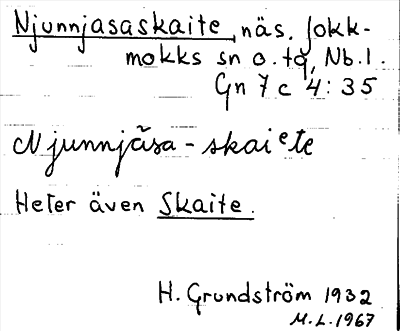 Njunnjasaskaite, näs, Jokk-
mokks sn o. tg, Nb.l.
Gn 7 c 4:35
Njunnjāsa-skaiete
Heter även Skaite.
H. Grundström 1932
M.L. 1967